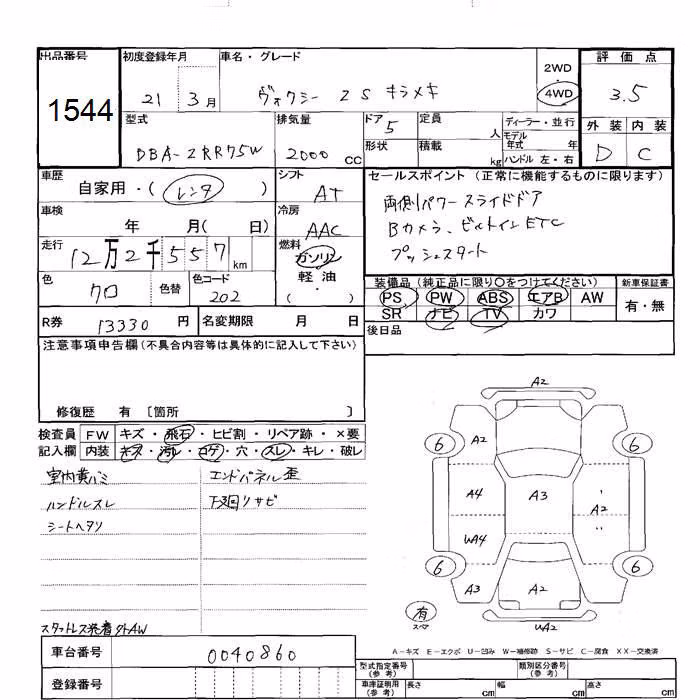 出品番号
1544
初度登録年月
21 3月
車名・グレード
ヴォクシー ZS キラメキ
2WD
4WD
評価点
3.5
外装 内装
D C
型式
DBA-ZRR75W
排気量
2000 CC
ドア 5
形状
定員 人
積載 kg
ディーラー・並行
モデル年式 年
ハンドル 左・右
車歴
自家用・(レンタ)
シフト
AT
車検
年 月( 日)
冷房
AAC
走行
12万2千557km
燃料
ガソリン
軽油
( )
色
クロ
色替
色コード
202
R券 13330円
名変期限 月 日
セールスポイント(正常に機能するものに限ります)
両側パワースライドドア
Bカメラ、ビルトインETC
プッシュスタート
装備品(純正品に限り○をつけてください)
PS PW ABS エアB AW
SR ナビ TV カワ
新車保証書
有・無
後日品
注意事項申告欄(不具合内容等は具体的に記入して下さい)
修復歴 有 〔箇所 〕
検査員記入欄
FW キズ・飛石・ヒビ割・リペア跡・×要
内装 キズ・汚レ・コゲ・穴・スレ・キレ・破レ
室内黄バミ
ハンドルスレ
シートヘタリ
エンドパネル歪
下廻リサビ
スタットレス発着 外AW
車台番号 0040860
登録番号
A2
6 A2 6
A4 A3 A2
UA4
6 6
A3 A2
有
スペア
UA2
A-キズ E-エクボ U-凹み W-補修跡 S-サビ C-腐食 XX-交換済
型式指定番号(参考)
類別区分番号(参考)
車庫証明用(参考) 長さ cm 幅 cm 高さ cm